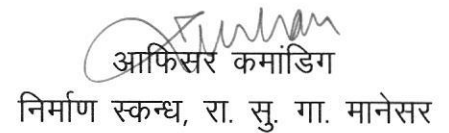 आफिसर कमांडिग
निर्माण स्कन्ध, रा. सु. गा. मानेसर